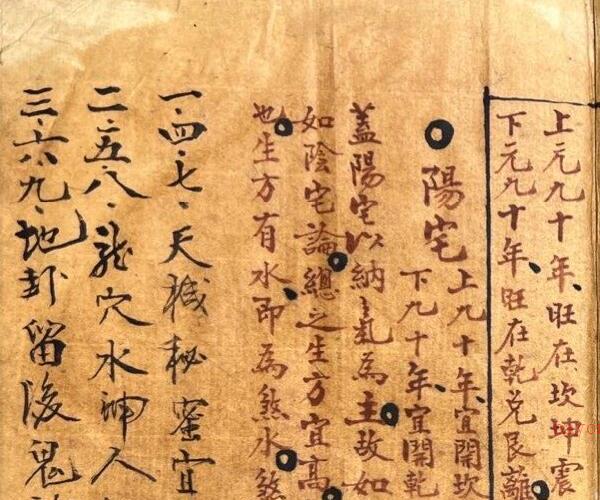 上元九十年旺在坎坤震
下元九十年旺在乾兌艮離
陽宅
上九十年宜開坎
下九十年宜開乾
蓋陽宅以納氣為主故如
如陰宅論總之生方宜高
也生方有水即為煞水煞
一四七天機秘蜜宜
二五八龍穴水神人
三六八九地卦留後鬼